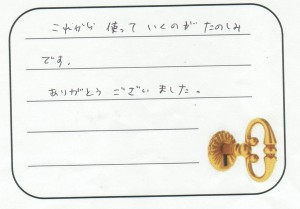 これから 使って いくのが たのしみ
です。
ありがとう ございました。